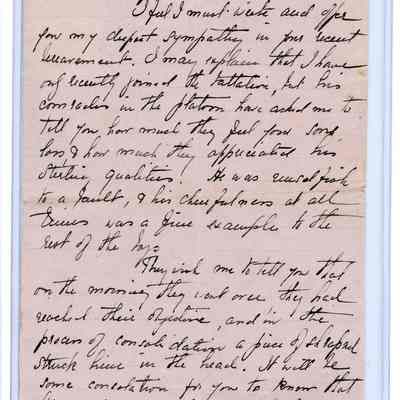 I feel I must write and offer
you my deepest sympathy in your recent
bereavement. I may explain that I have
only recently joined the battalion, but his
comrades in the platoon have asked me to
tell you how much they feel your sore
loss & how much they appreciated his
sterling qualities. He was unselfish
to a fault, & his cheerfulness at all
times was a fine example to the
rest of the boys.
They wish me to tell you that
on the morning they went over they had
reached their objective, and in the
process of consolidation a piece of
struck him in the head. It will be
some consolation for you to know that